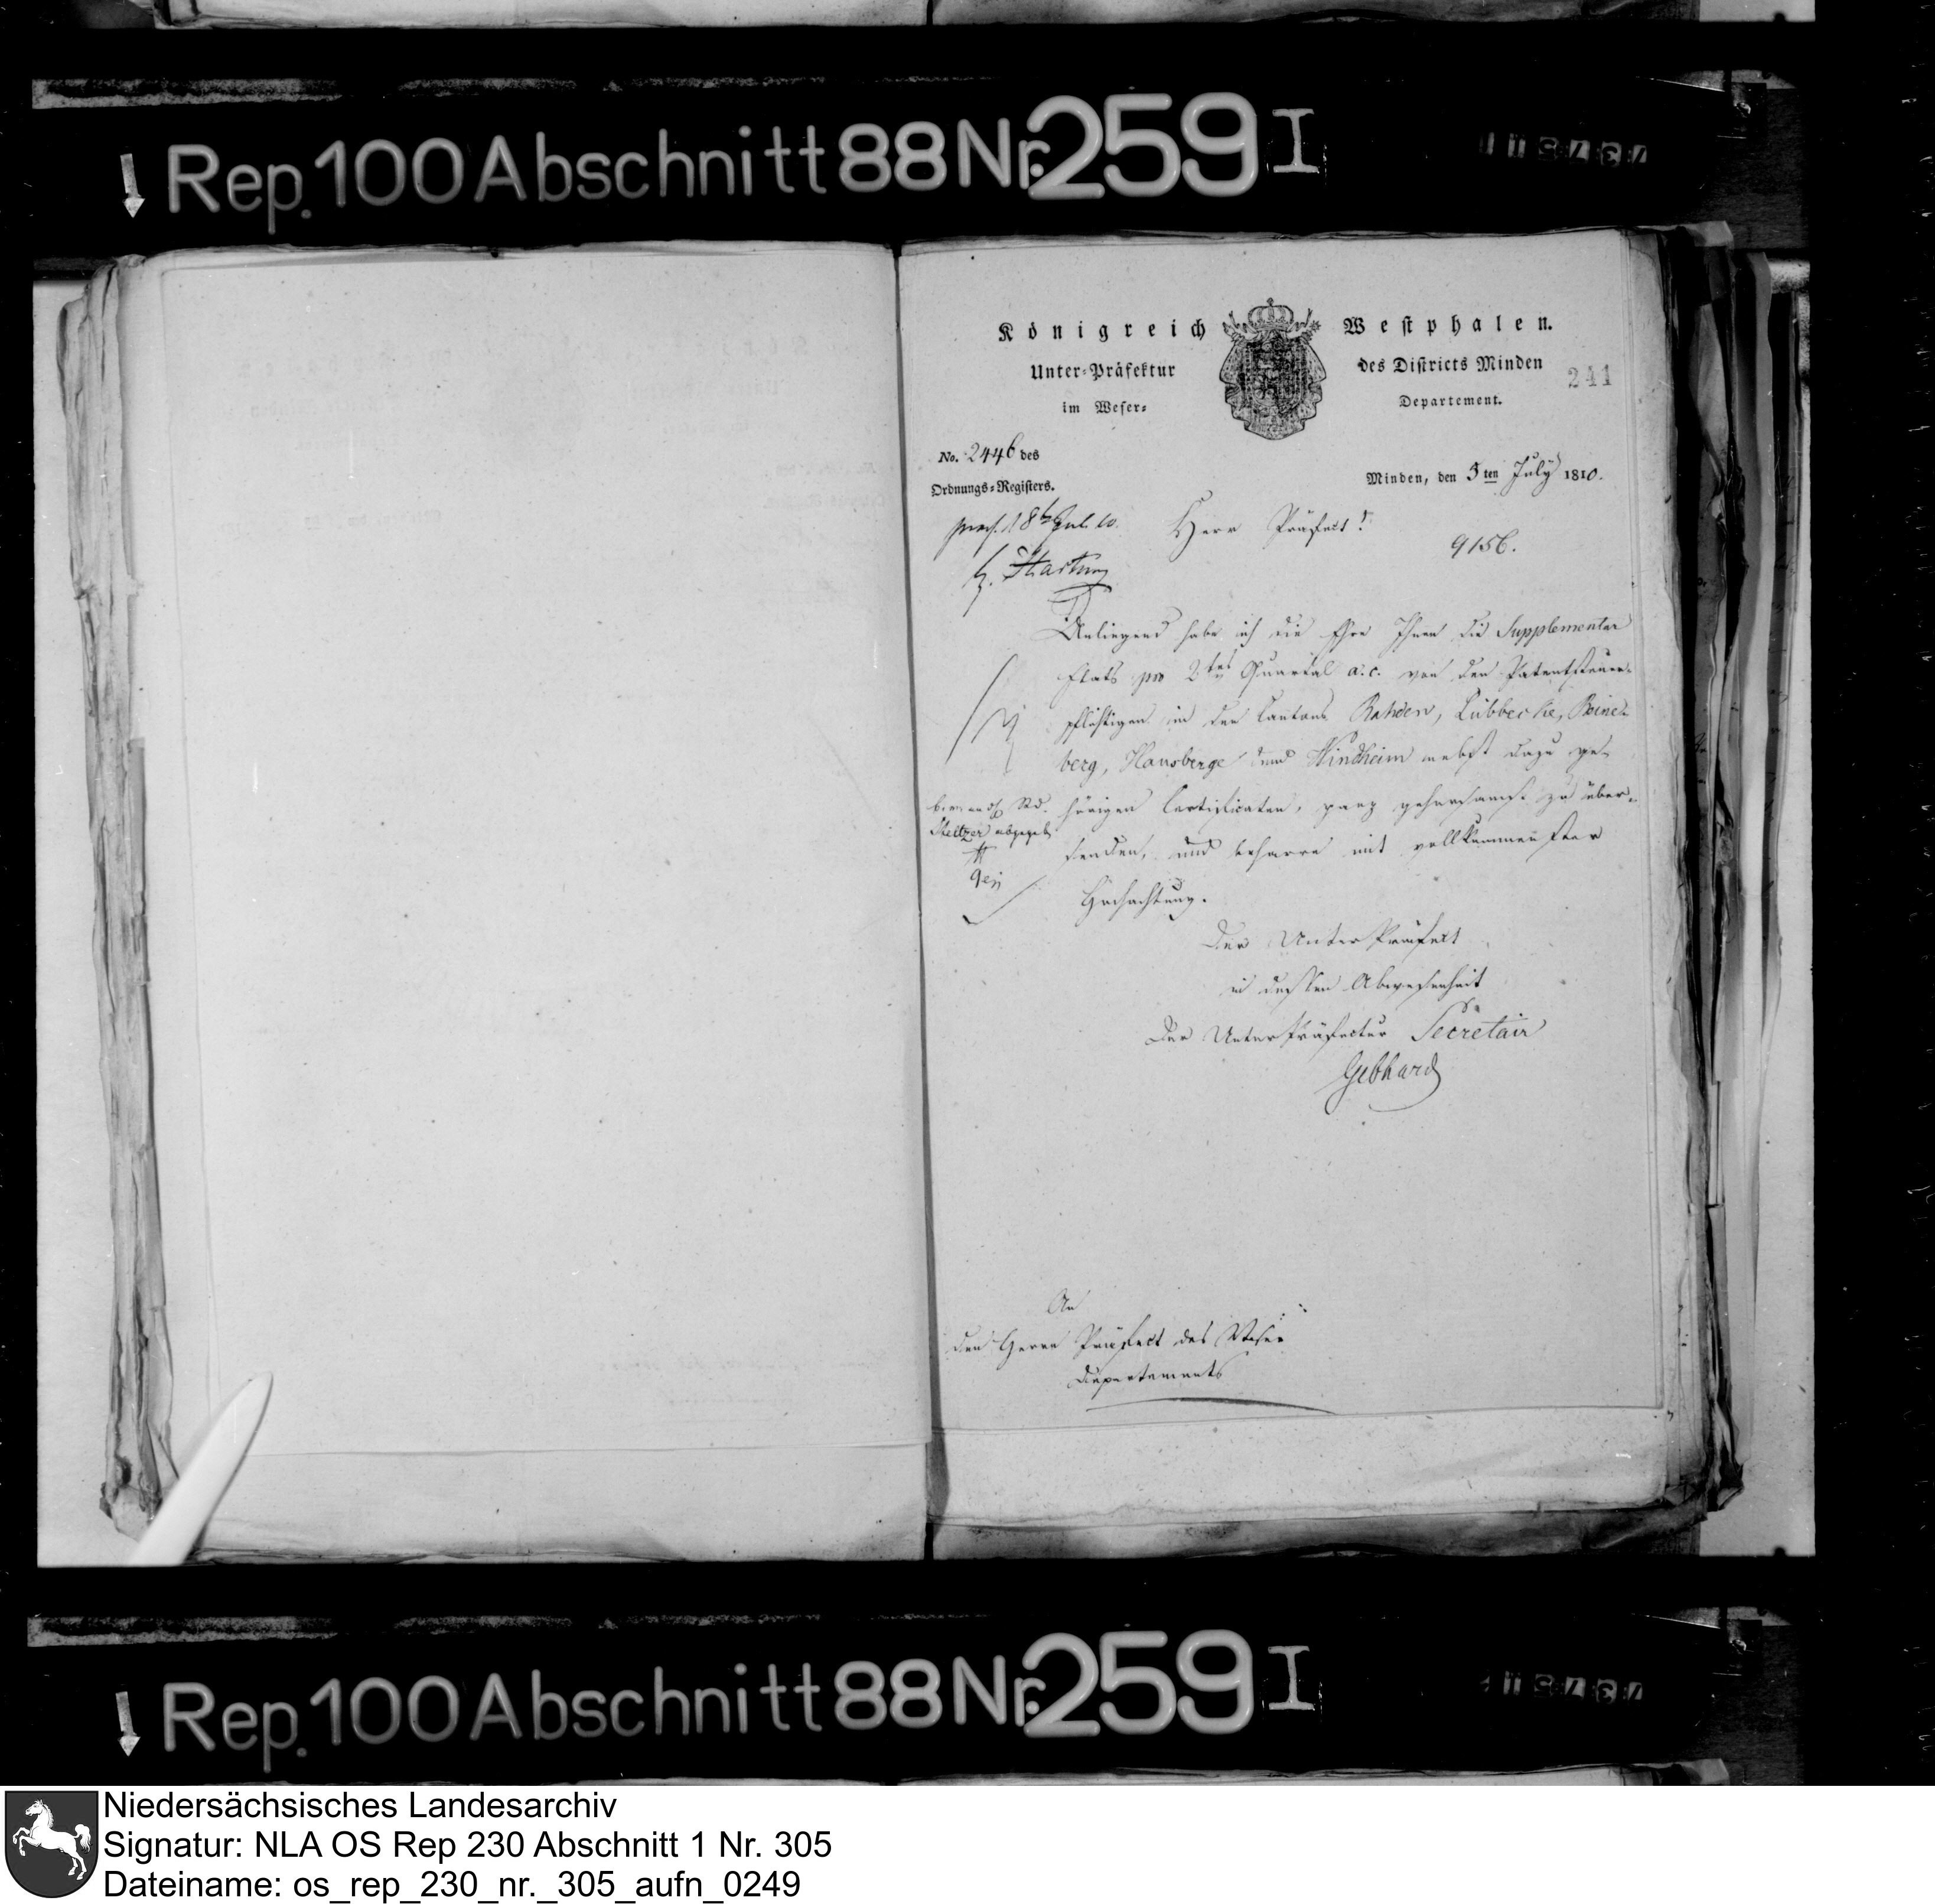 Rep. 100 Abschnitt 88 Nr. 259 I
Königreich Westphalen.
Unter-Präfektur des Districts Minden
im Weser- Departement.
241
No. 2446 des
Ordnungs-Registers.
Minden, den 5ten July 1810.
Herr Präfect!
9156.
praes. d 8t Jul. 10.
Hartung
Anliegend habe ich die Ehre Ihnen die Supplementar
Etats pro 2tes Quartal a. c. von den Patentsteuer-
pflichtigen in den Cantons Rahden, Lübbecke, Reine-
berg, Hausberge und Windheim nebst dazu ge-
hörigen Certificaten, ganz gehorsamst zu über-
senden, und beharre mit vollkommenster
Hochachtung.
Der UnterPräfect
in dessen Abwesenheit
Der UnterPräfectur Secretair
Gebhard
An
den Herrn Präfect des Weser
Departements
Rep. 100 Abschnitt 88 Nr. 259 I
Niedersächsisches Landesarchiv
Signatur: NLA OS Rep 230 Abschnitt 1 Nr. 305
Dateiname: os_rep_230_nr._305_aufn_0249